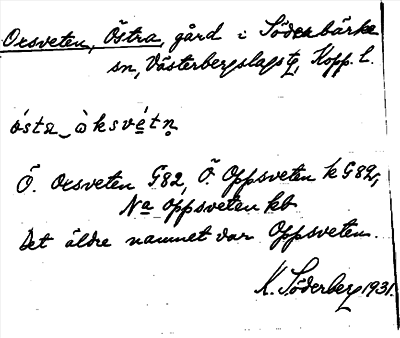 Oxsveten, Östra, gård i Söderbärke
sn, Västerbergslags tg, Kopp. l.
östa òksvétn̥
Ö. Oxsveten G82, Ö. Oppsveten k G82,
Na Oppsveten kb
Det äldre namnet var Oppsveten.
K. Söderberg 1931.